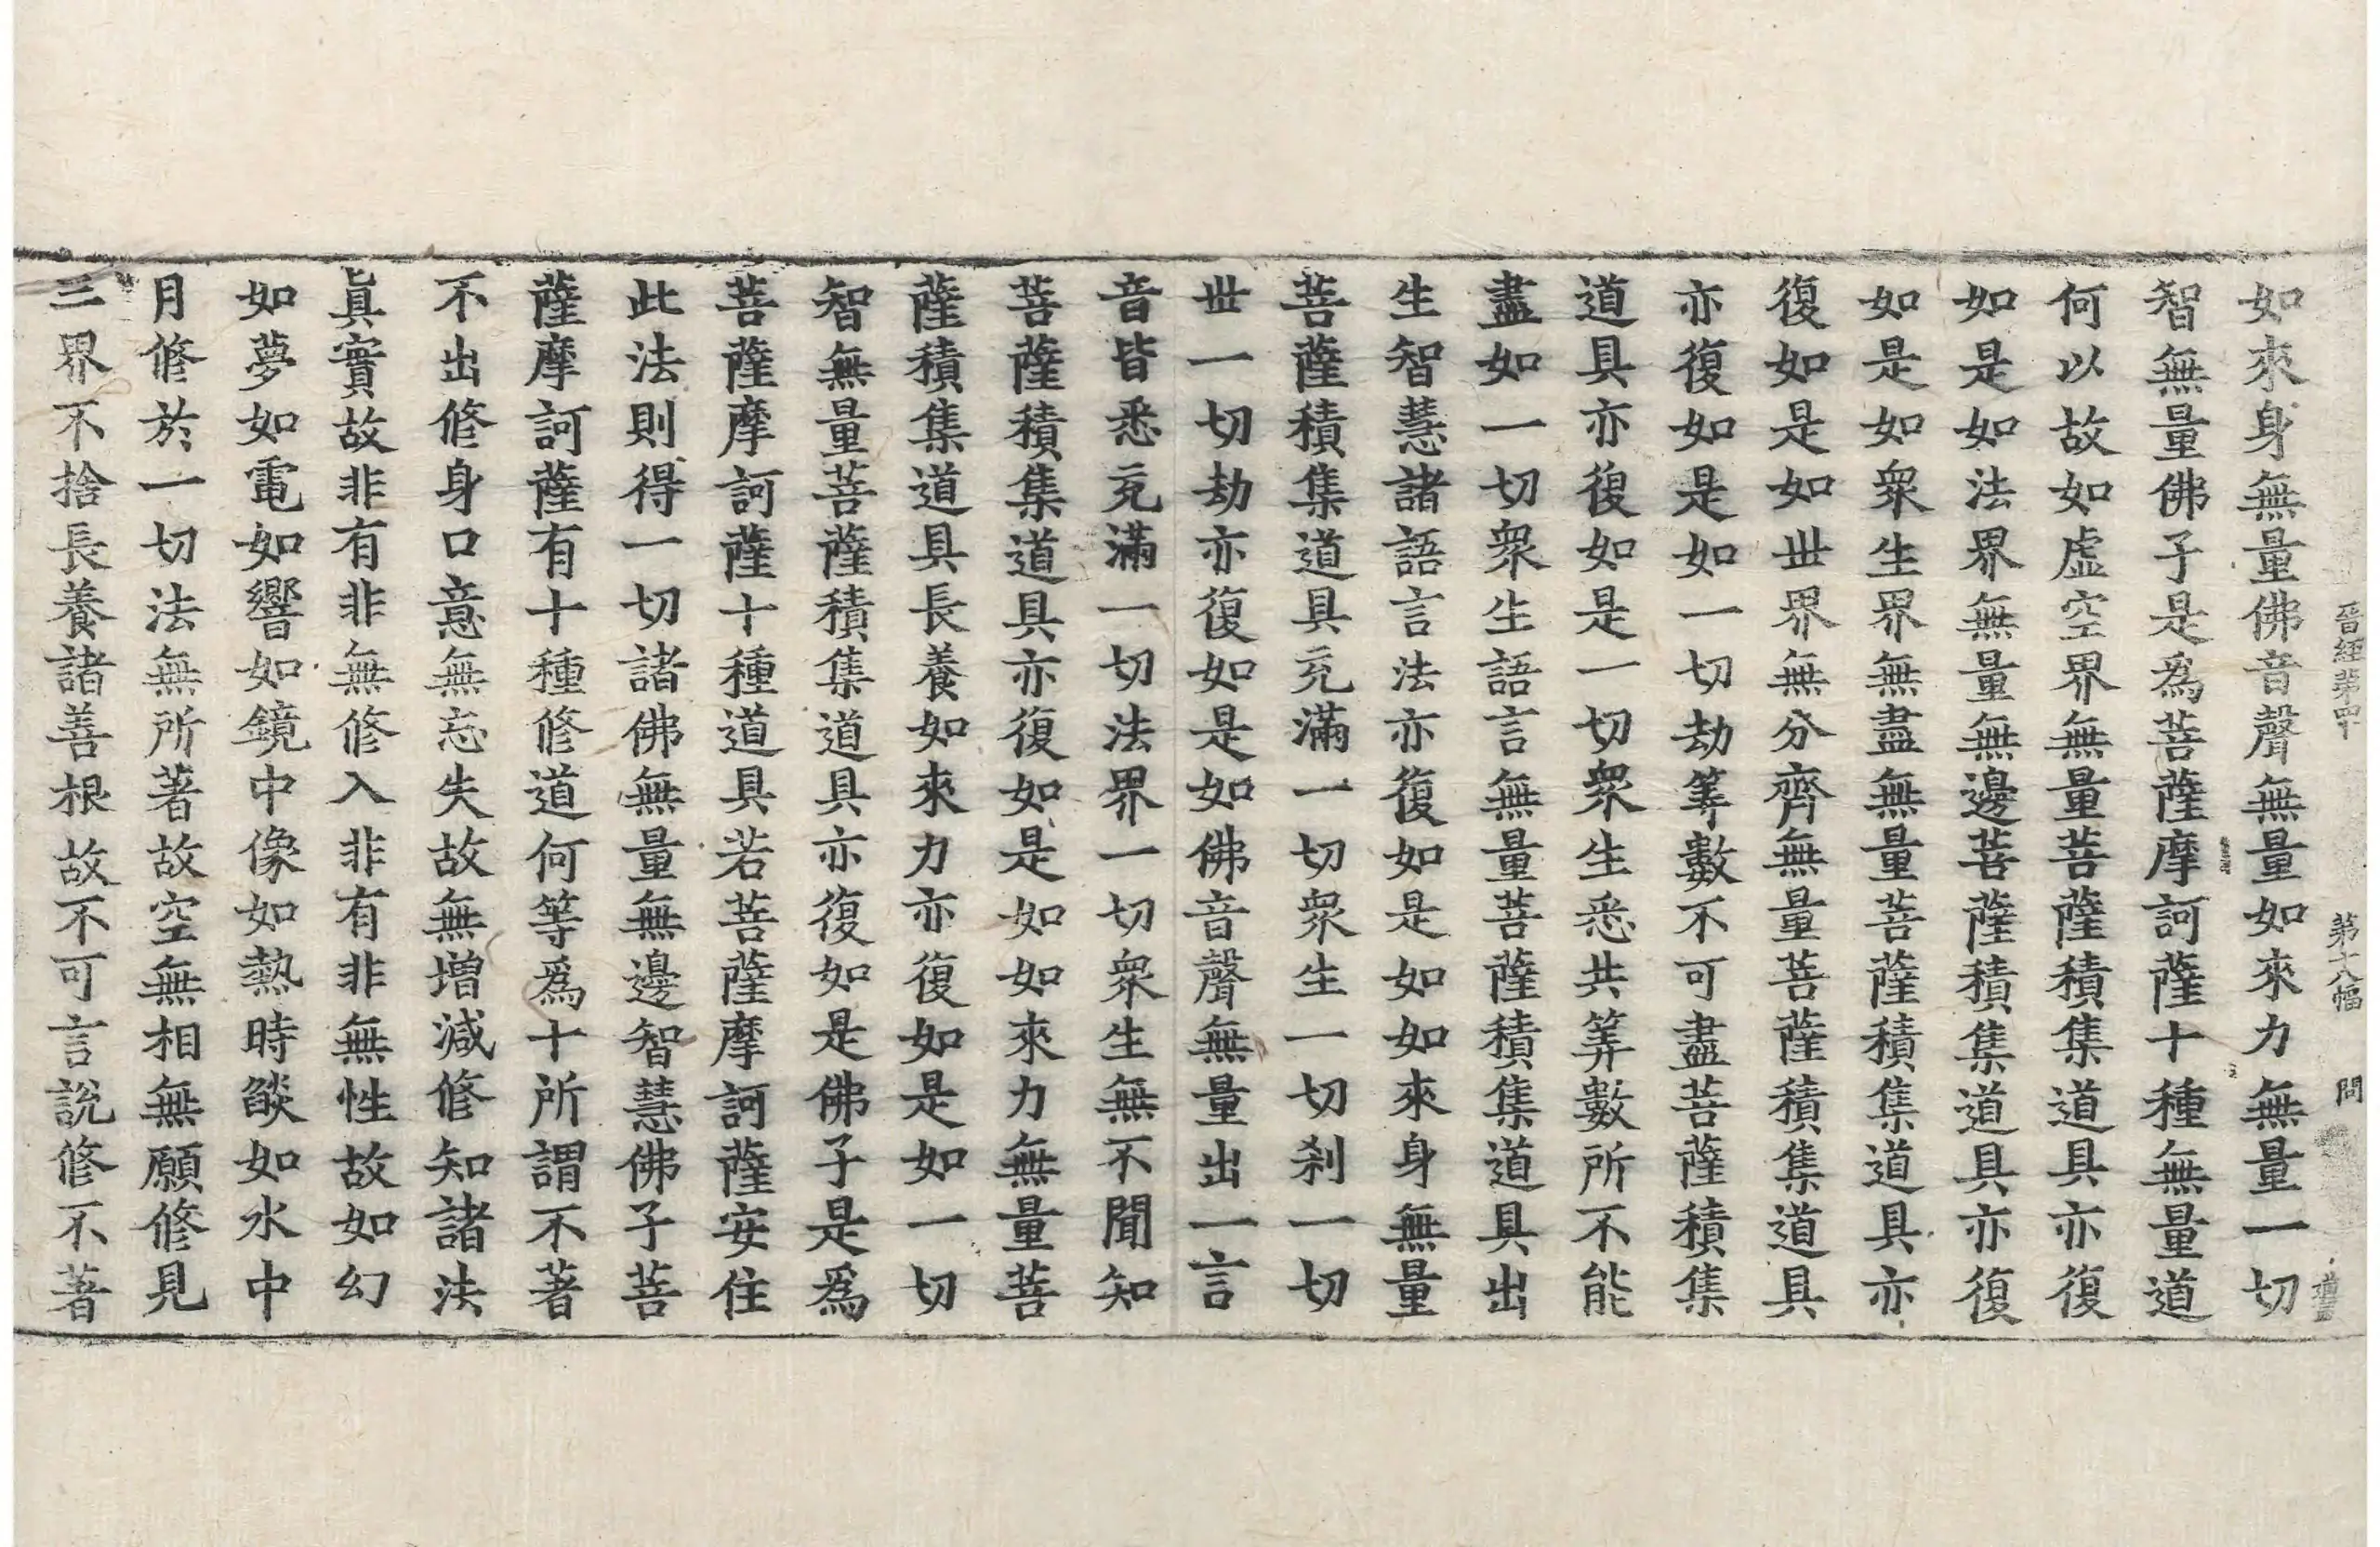 晉經第四十 第十八幅 問
如來身無量佛音聲無量如來力無量一切
智無量佛子是為菩薩摩訶薩十種無量道
何以故如虛空界無量菩薩積集道具亦復
如是如法界無量無邊菩薩積集道具亦復
如是如眾生界無盡無量菩薩積集道具亦
復如是如世界無分齊無量菩薩積集道具
亦復如是如一切劫筭數不可盡菩薩積集
道具亦復如是一切眾生悉共筭數所不能
盡如一切眾生語言無量菩薩積集道具出
生智慧諸語言法亦復如是如如來身無量
菩薩積集道具充滿一切眾生一切剎一切
世一切劫亦復如是如佛音聲無量出一言
音皆悉充滿一切法界一切眾生無不聞知
菩薩積集道具亦復如是如如來力無量菩
薩積集道具長養如來力亦復如是如一切
智無量菩薩積集道具亦復如是佛子是為
菩薩摩訶薩十種道具若菩薩摩訶薩安住
此法則得一切諸佛無量無邊智慧佛子菩
薩摩訶薩有十種修道何等為十所謂不著
不出修身口意無忘失故無增減修知諸法
眞實故非有非無修入非有非無性故如幻
如夢如電如響如鏡中像如熱時燄如水中
月修於一切法無所著故空無相無願修見
三界不捨長養諸善根故不可言說修不著